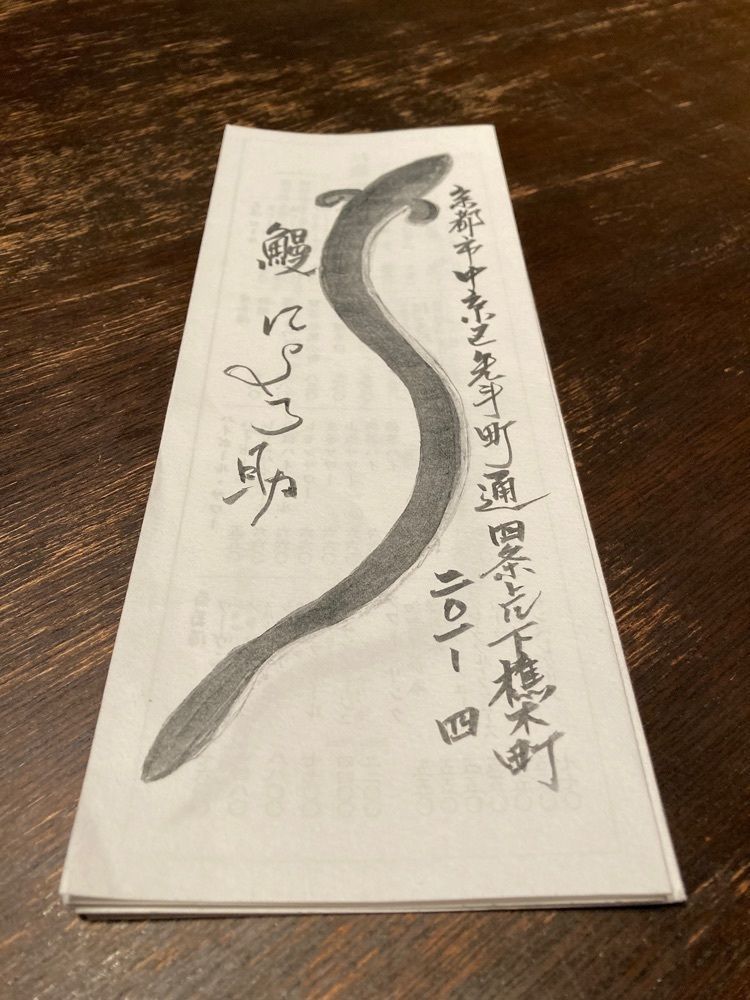 京都市中京区先斗町通四条上ル下樵木町
二〇一-四
鰻 にょろ助